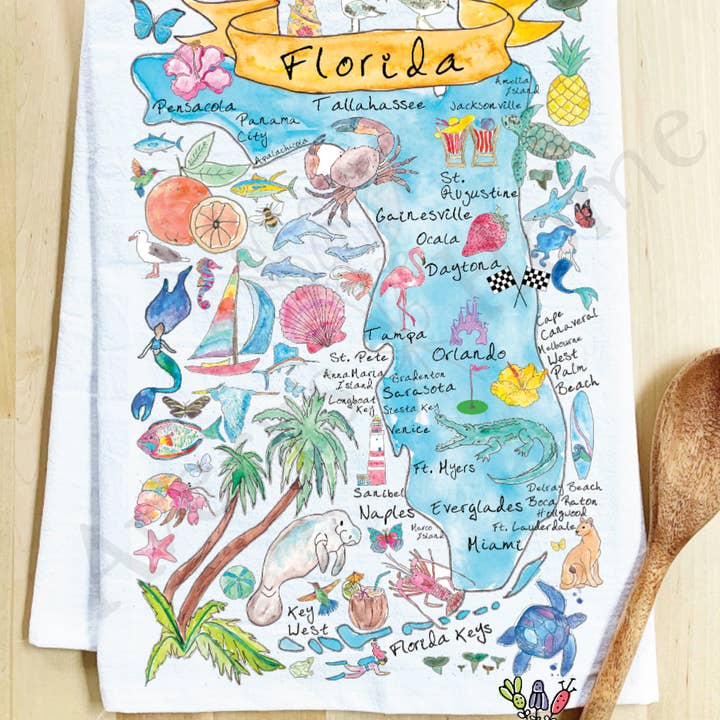 Florida
Amelia
Island
Pensacola
Tallahassee
Jacksonville
Panama
City
Apalachicola
St.
Augustine
Gainesville
Ocala
Daytona
Tampa
Orlando
Cape
Canaveral
Melbourne
West
Palm
Beach
St. Pete
Anna Maria
Island
Bradenton
Sarasota
Longboat
Key
Siesta Key
Venice
Ft. Myers
Sanibel
Naples
Marco
Island
Everglades
Delray Beach
Boca Raton
Hollywood
Ft. Lauderdale
Miami
Key
West
Florida Keys